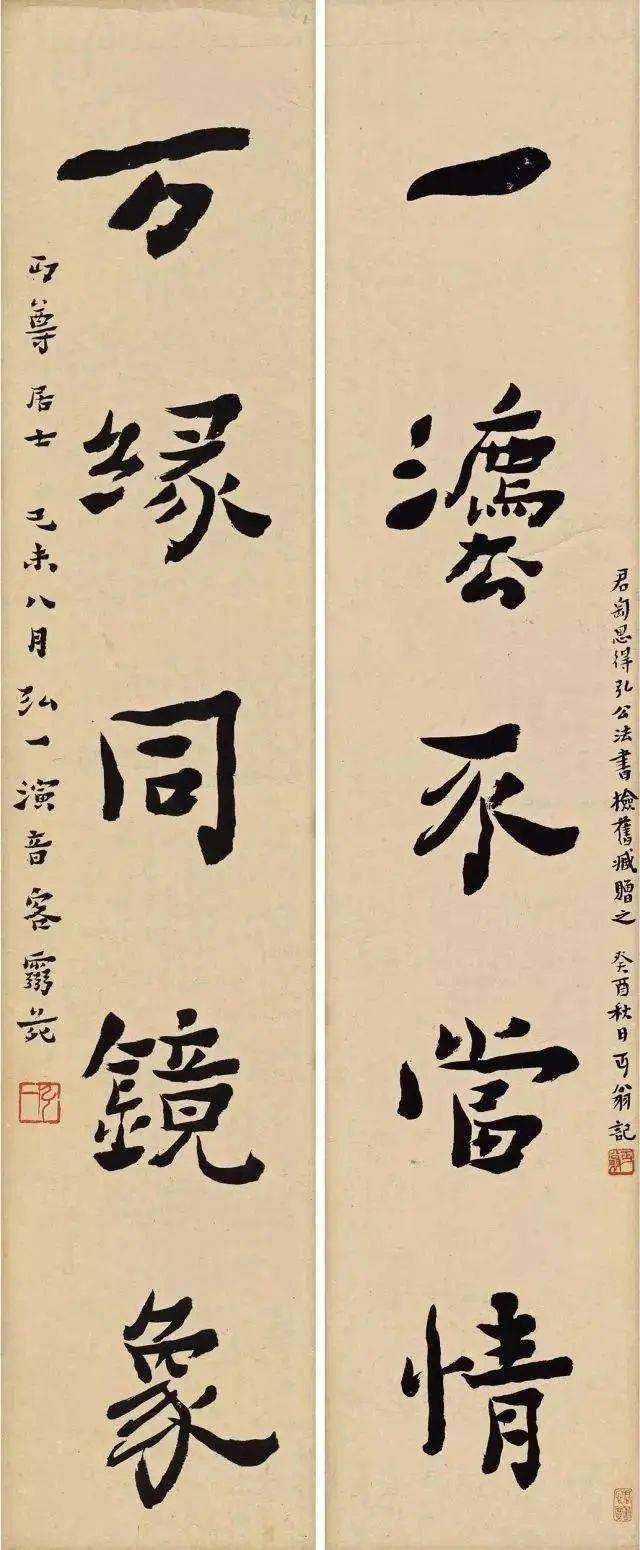 一灋不當情
君匋思得弘公法書檢舊臧贈之 癸酉秋日丏翁記
万緣同鏡象
丏尊居士 己未八月 弘一演音客靈苑
弘一